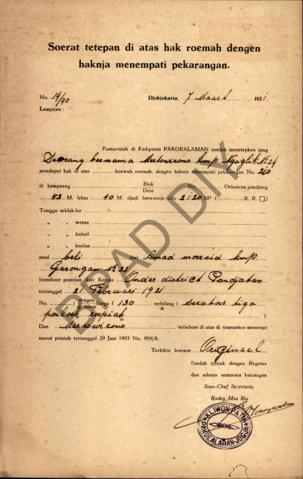 Soerat tetepan di atas hak roemah dengen
haknja menempati pekarangan.
No. 14/90 Djokjakarta, 7 Maart 1921.
Lampiran:
Pamerentah di Kadipaten PAKOEALAMAN soedah menetepken jang
Seorang bernama Mertowirono kmp. No 24
mendapet hak di atas boewat roemah, dengen haknja menempati pekarangan No. 240
di kampoeng Blok Desa Oekoeran pandjang
53 M. lebar 40 M. djadi loewasnja ada 2120 M² ( R. R. □)
Tangga sebelah lor
" wetan
" kidoel
" koelon
asal beli dari Amad moersid kmp.
Gerongan
terseboet pratelan dari Kepala Onder district Pandjatan
tertanggal 21 Februari 1921
No. Dengen harga f 130 terbilang ( seratus tiga
poeloeh roepiah )
Dan Mertowirono terseboet di atas toeroetken menetepi
soerat printah tertanggal 29 Juni 1903 No. 959/A.
Terbikin boewat Origineel
Tondo tjotjok dengen Register
dan adanja semoewa katrangan
Sous-Chef Secretarie,
Raden Mas Rio
KLIWON-PATIH
PAKOEALAMAN-JOGJA
BPAD DIY